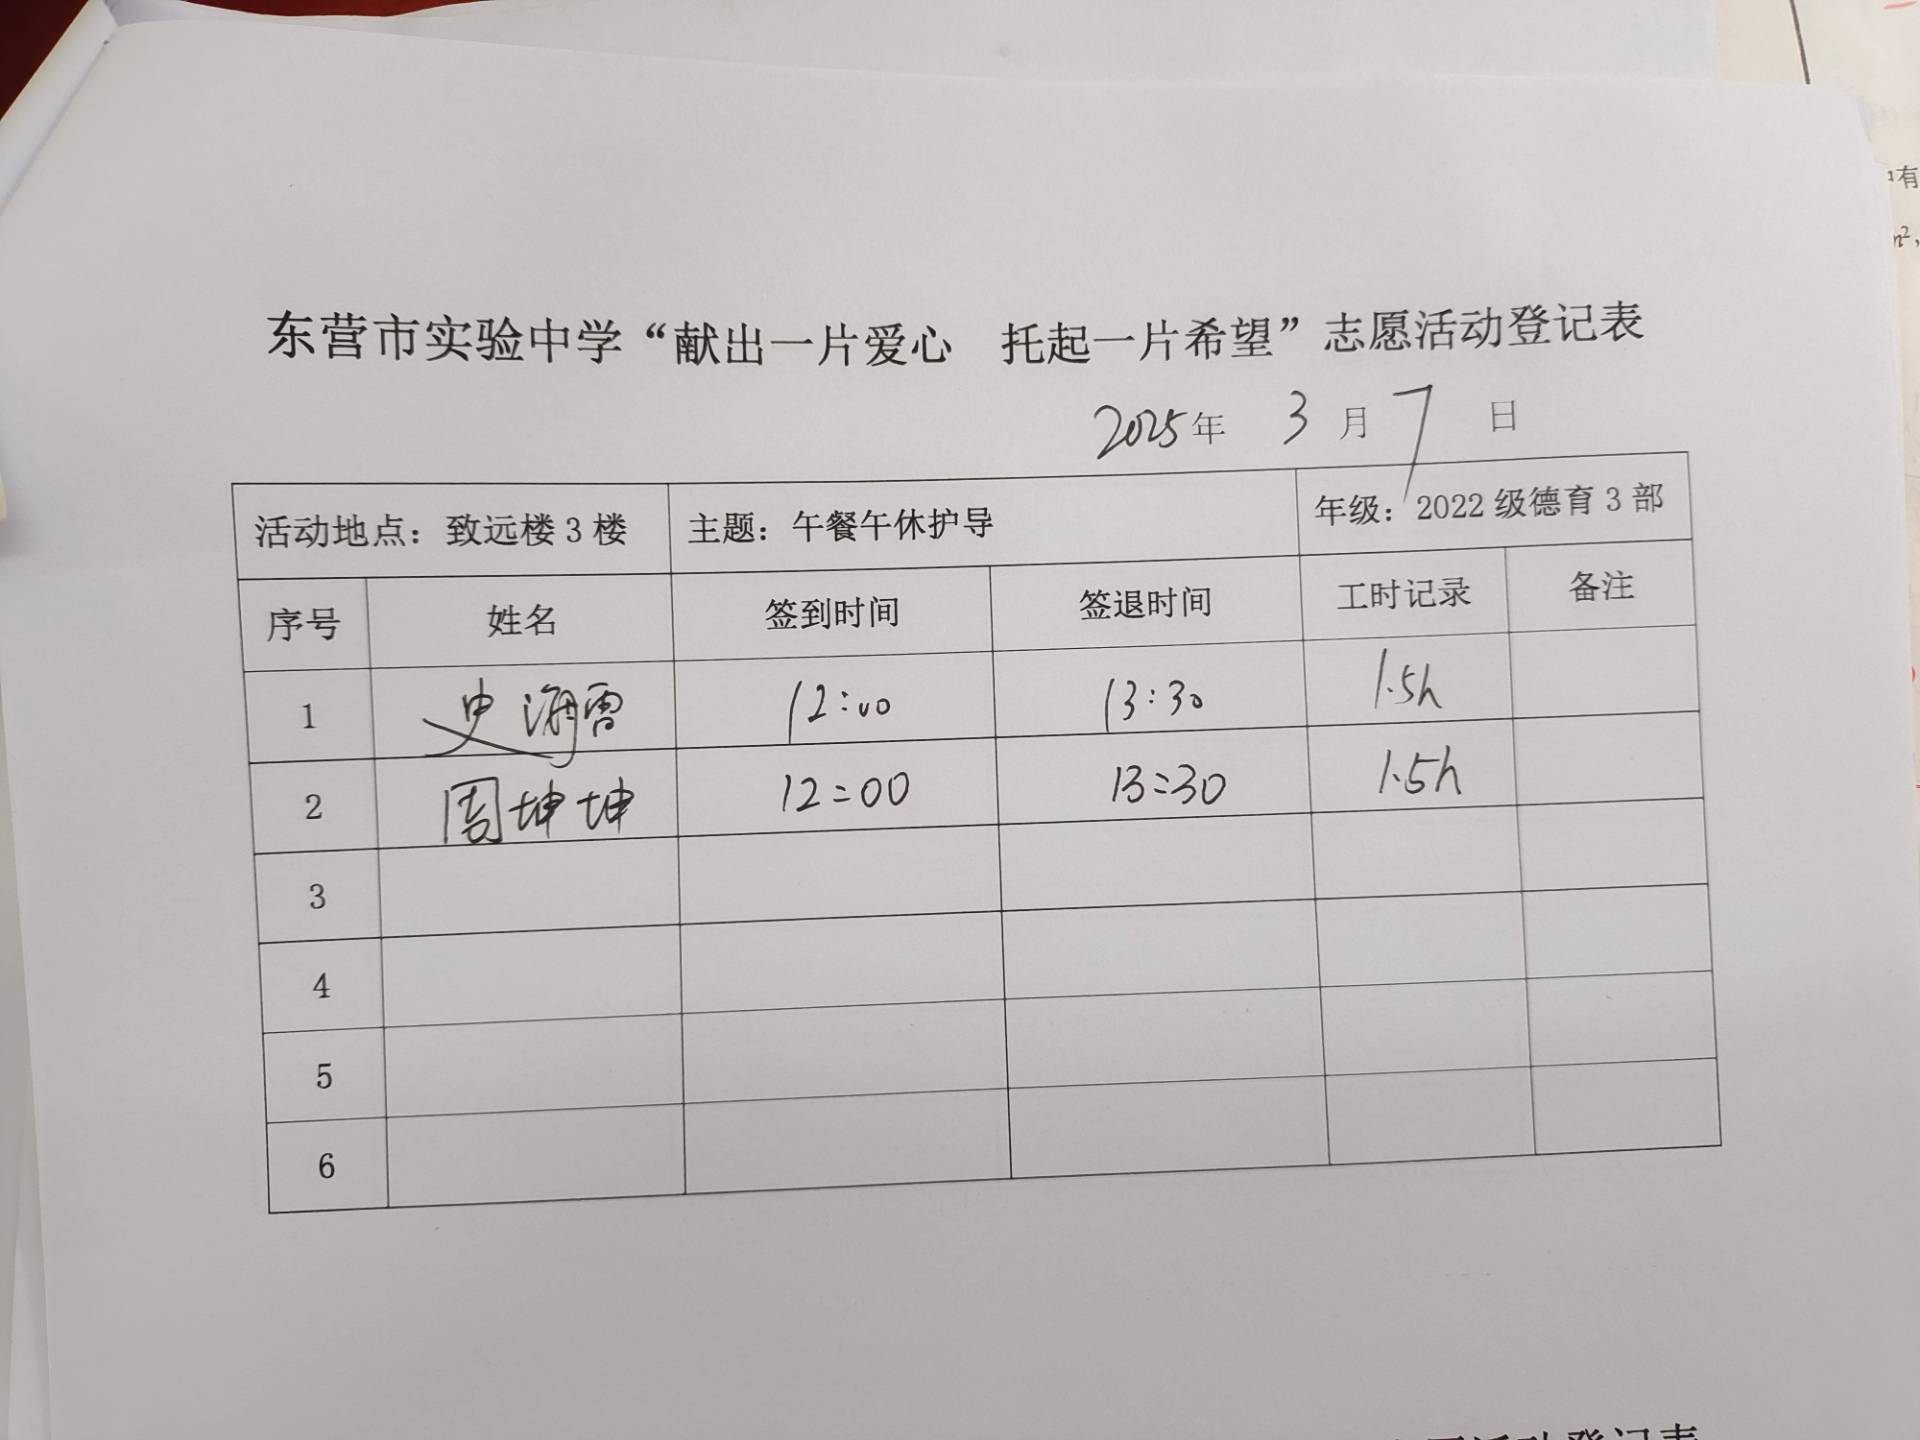 中有
m²,
东营市实验中学“献出一片爱心 托起一片希望”志愿活动登记表
2025年 3月 7日
活动地点：致远楼3楼 主题：午餐午休护导 年级：2022级德育3部
序号 姓名 签到时间 签退时间 工时记录 备注
1 史海雷 12:00 13:30 1.5h
2 周坤坤 12:00 13:30 1.5h
3
4
5
6
志愿活动登记表